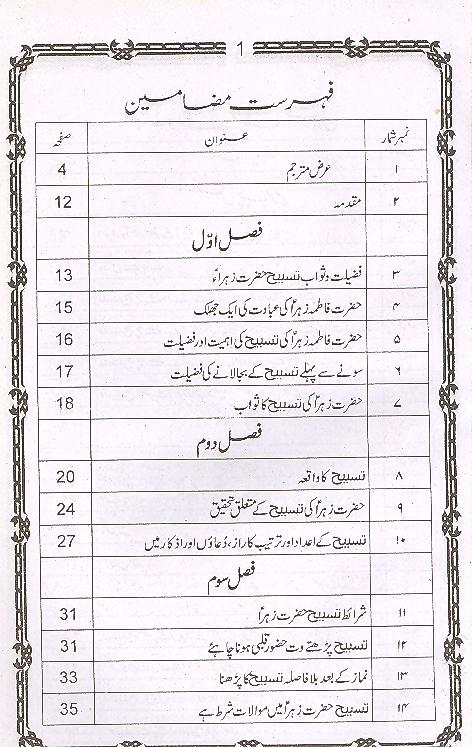 1
فہرست مضامین
نمبر شمار عنوان صفحہ
۱ عرض مترجم 4
۲ مقدمہ 12
فصل اوّل
۳ فضیلت و ثواب تسبیح حضرت زہراءؑ 13
۴ حضرت فاطمہ زہراؑ کی عبادت کی ایک جھلک 15
۵ حضرت فاطمہ زہراؑ کی تسبیح کی اہمیت اور فضیلت 16
۶ سونے سے پہلے تسبیح کے بجالانے کی فضیلت 17
۷ حضرت زہراؑ کی تسبیح کا ثواب 18
فصل دوم
۸ تسبیح کا واقعہ 20
۹ حضرت زہراؑ کی تسبیح کے متعلق تحقیق 24
۱۰ تسبیح کے اعداد اور ترتیب کا راز، دُعاؤں اور اذکار میں 27
فصل سوم
۱۱ شرائط تسبیح حضرت زہراؑ 31
۱۲ تسبیح پڑھتے وت حضور قلبی ہونا چاہئے 31
۱۳ نماز کے بعد بلا فاصلہ تسبیح کا پڑھنا 33
۱۴ تسبیح حضرت زہراؑ میں موالات شرط ہے 35